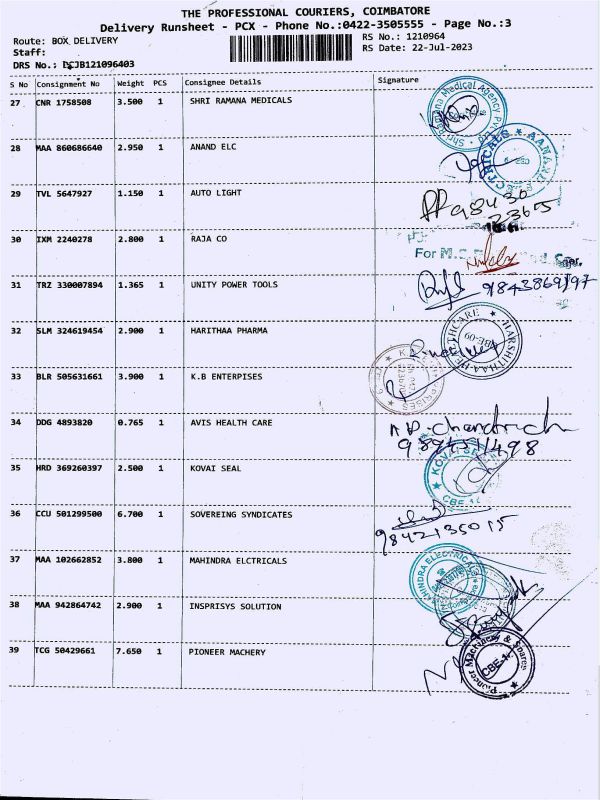 THE PROFESSIONAL COURIERS, COIMBATORE
Delivery Runsheet - PCX - Phone No.:0422-3505555 - Page No.:3
Route: BOX DELIVERY
RS No.: 1210964
Staff:
RS Date: 22-Jul-2023
DRS No.: JB121096403
S No Consignment No Weight PCS Consignee Details Signature
27 CNR 1758508 3.500 1 SHRI RAMANA MEDICALS
28 MAA 860686640 2.950 1 ANAND ELC
29 TVL 5647927 1.150 1 AUTO LIGHT
30 IXM 2240278 2.800 1 RAJA CO
For
31 TRZ 330007894 1.365 1 UNITY POWER TOOLS
9843869197
32 SLM 324619454 2.900 1 HARITHAA PHARMA
HARSHITHAA HEALTHCARE
CBE-09
33 BLR 505631661 3.900 1 K.B ENTERPISES
34 DDG 4893820 0.765 1 AVIS HEALTH CARE
35 HRD 369260397 2.500 1 KOVAI SEAL
KOVAI
36 CCU 501299500 6.700 1 SOVEREING SYNDICATES
9842135015
37 MAA 102662852 3.800 1 MAHINDRA ELCTRICALS
38 MAA 942864742 2.900 1 INSPRISYS SOLUTION
39 TCG 50429661 7.650 1 PIONEER MACHERY
Pioneer Machinery & Spares